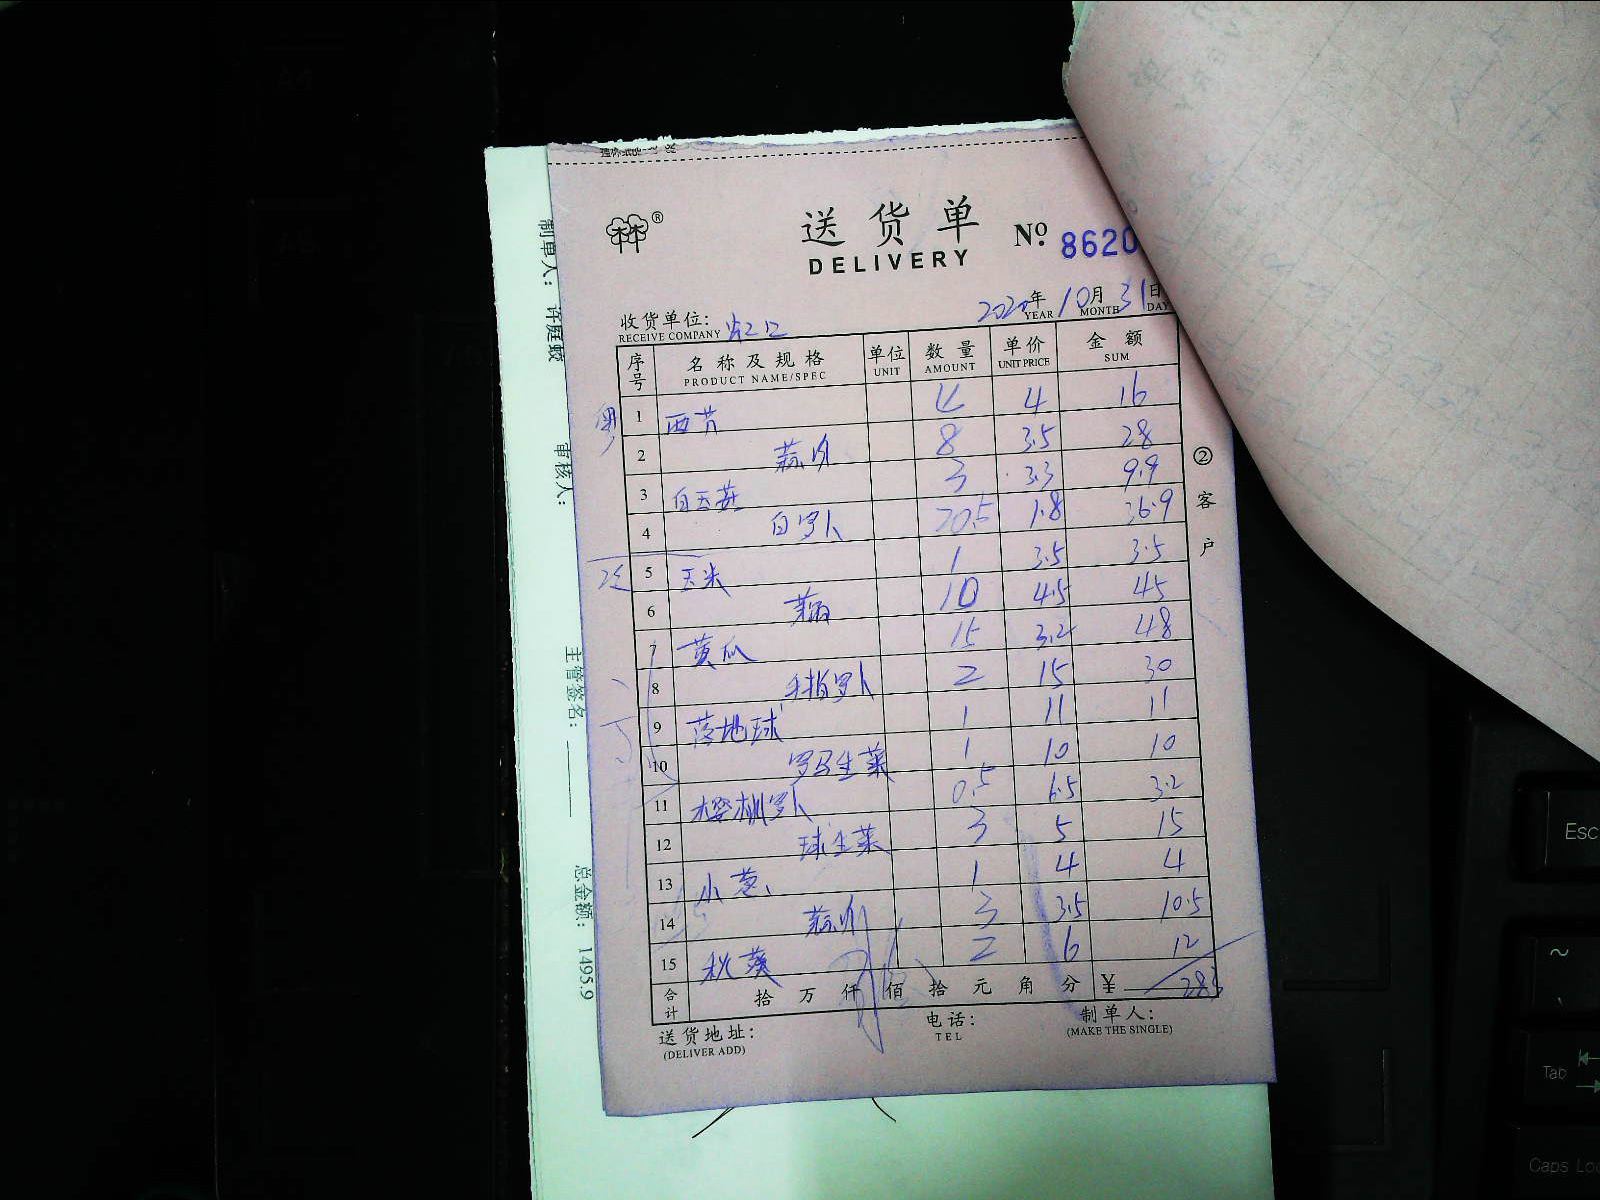 送货单
DELIVERY
№ 8620
2020年 10月 31日
YEAR MONTH DAY
收货单位:
RECEIVE COMPANY
序号 名称及规格 单位 数量 单价 金额
PRODUCT NAME/SPEC UNIT AMOUNT UNIT PRICE SUM
1 西芹 4 4 16
2 8 3.5 28
3 白玉菇 3 3.3 9.9
4 白罗卜 20.5 1.8 36.9
5 玉米 1 3.5 3.5
6 10 4.5 45
7 黄瓜 15 3.2 48
8 手指罗卜 2 15 30
9 落地球 1 11 11
10 罗马生菜 1 10 10
11 樱桃罗卜 0.5 6.5 3.2
12 球生菜 3 5 15
13 小葱 1 4 4
14 3 3.5 10.5
15 秋葵 2 6 12
合计 拾 万 仟 佰 拾 元 角 分 ¥
送货地址: 电话: 制单人:
(DELIVER ADD) TEL (MAKE THE SINGLE)
②客户
制单人:
审核人:
主管签名:
总金额: 1495.9
Esc
~
Tab
Caps Lo